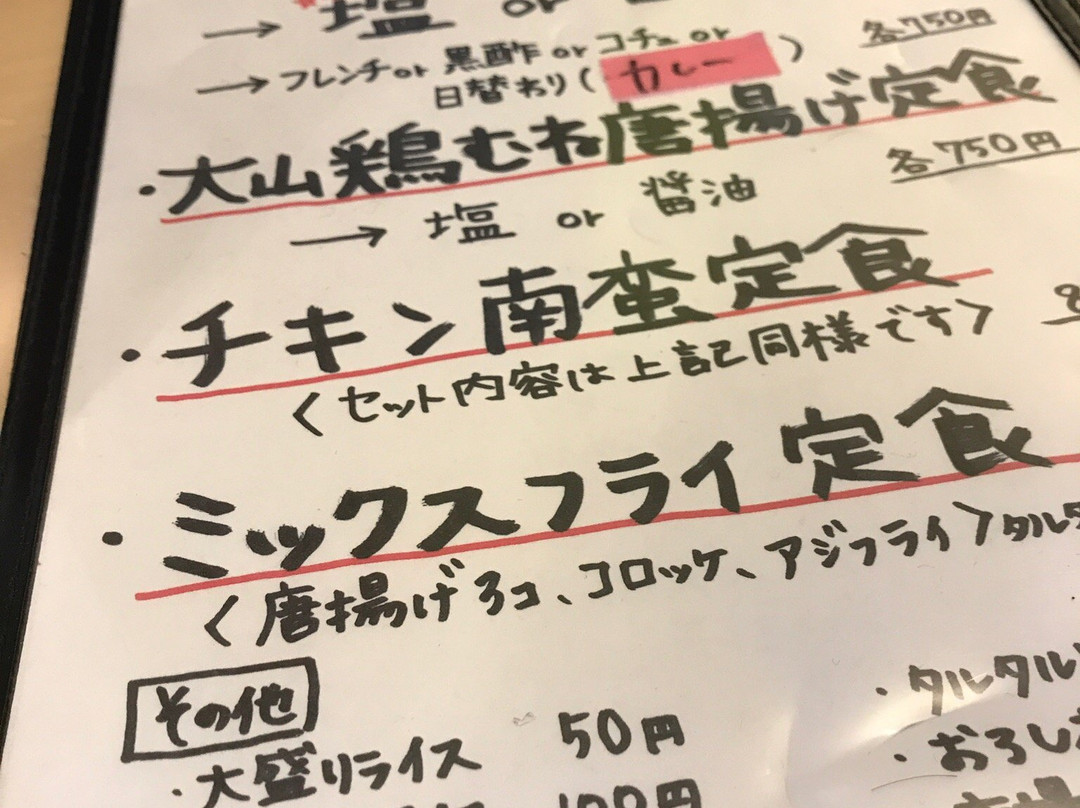 → 塩 or
→ フレンチ or 黒酢 or コチュ or 各750円
日替わり ( カレー )
・大山鶏むね唐揚げ定食
→ 塩 or 醤油 各750円
・チキン南蛮定食
〈セット内容は上記同様です〉
・ミックスフライ定食
〈唐揚げ3コ、コロッケ、アジフライ〉タルタ
その他
・大盛りライス 50円
・タルタル
100円
・おろし